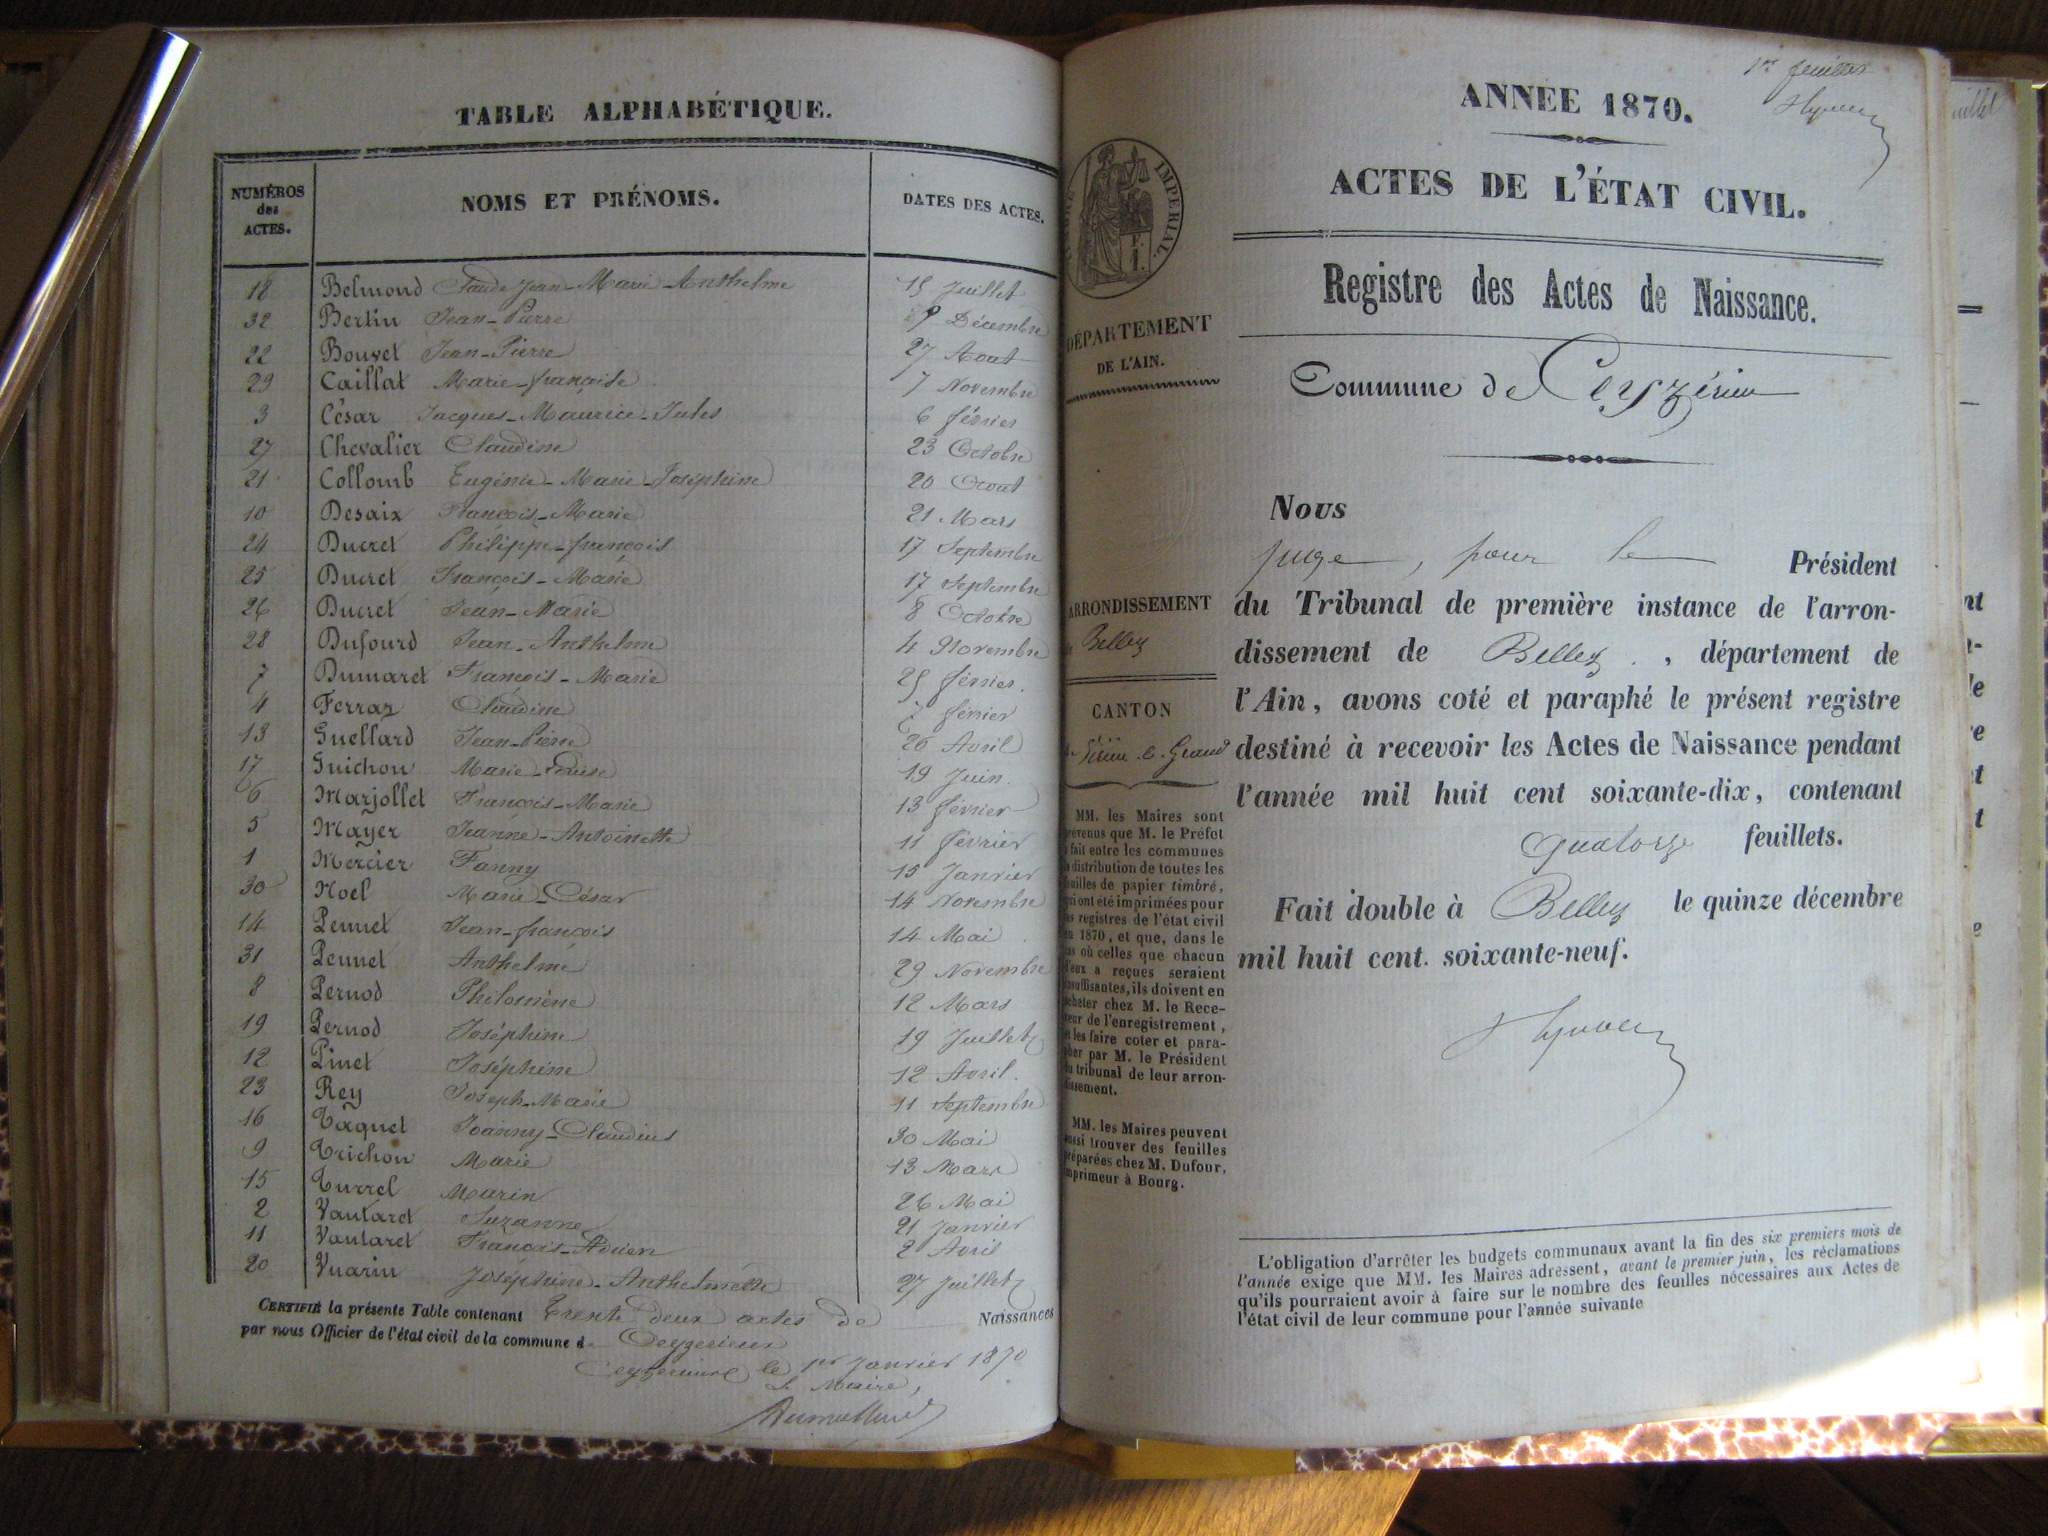 TABLE ALPHABÉTIQUE.
NUMÉROS des ACTES. NOMS ET PRÉNOMS. DATES DES ACTES.
18 Belmond Claude Jean-Marie-Anthelme 15 Juillet
32 Bertin Jean-Pierre 9 Décembre
22 Bouvet Jean-Pierre 27 Aout
29 Caillat Marie-françoise 7 Novembre
3 César Jacques-Maurice-Jules 6 février
27 Chevalier Claudine 23 Octobre
21 Collomb Eugénie-Marie-Joséphine 20 Aout
10 Desaix François-Marie 21 Mars
24 Ducret Philippe-françois 17 Septembre
25 Ducret François-Marie 17 Septembre
26 Ducret Jean-Marie 8 Octobre
28 Dufourd Jean-Anthelme 4 Novembre
7 Dumaret François-Marie 25 février.
4 Ferraz Claudine 7 février
13 Guellard Jean-Pierre 26 Avril
17 Guichon Marie-Louise 19 Juin.
6 Marjollet François-Marie 13 février
5 Mayer Jeanne-Antoinette 11 février
1 Mercier Fanny 15 Janvier
30 Noel Marie-César 14 Novembre
14 Pennet Jean-françois 14 Mai
31 Pennet Anthelme 29 Novembre
8 Pernod Philomène 12 Mars
19 Pernod Joséphine 19 Juillet
12 Pinet Joséphine 12 Avril.
23 Rey Joseph-Marie 11 Septembre
16 Taquet Joanny-Claudius 30 Mai
9 Trichon Marie 13 Mars
15 Turrel Marin 26 Mai
2 Vautaret Suzanne 21 Janvier
11 Vautaret François-Adrien 2 Avril
20 Vuarin Joséphine-Anthelmette 27 Juillet
CERTIFIÉ la présente Table contenant Trente deux actes de Naissances
par nous Officier de l'état civil de la commune d Ceyzerieux
Ceyzerieux le 1er Janvier 1870
Le Maire,
1er feuillet
ANNÉE 1870.
ACTES DE L'ÉTAT CIVIL.
TIMBRE IMPERIAL.
1 F.
Registre des Actes de Naissance.
DÉPARTEMENT
DE L'AIN.
Commune de Ceyzérieu
Nous
juge, pour le Président
du Tribunal de première instance de l'arron-
dissement de Belley, département de
l'Ain, avons coté et paraphé le présent registre
destiné à recevoir les Actes de Naissance pendant
l'année mil huit cent soixante-dix, contenant
quatorze feuillets.
Fait double à Belley le quinze décembre
mil huit cent. soixante-neuf.
ARRONDISSEMENT
Belley
CANTON
Virieu-le-Grand
MM. les Maires sont
prévenus que M. le Préfet
a fait entre les communes
la distribution de toutes les
feuilles de papier timbré,
qui ont été imprimées pour
les registres de l'état civil
en 1870, et que, dans le
cas où celles que chacun
d'eux a reçues seraient
insuffisantes, ils doivent en
acheter chez M. le Rece-
veur de l'enregistrement,
et les faire coter et para-
pher par M. le Président
du tribunal de leur arron-
dissement.
MM. les Maires peuvent
aussi trouver des feuilles
préparées chez M. Dufour,
imprimeur à Bourg.
L'obligation d'arrêter les budgets communaux avant la fin des six premiers mois de
l'année exige que MM. les Maires adressent, avant le premier juin, les réclamations
qu'ils pourraient avoir à faire sur le nombre des feuilles nécessaires aux Actes de
l'état civil de leur commune pour l'année suivante